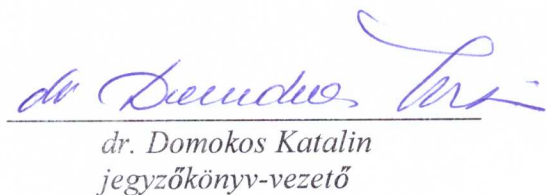 dr Domokos
dr. Domokos Katalin
jegyzőkönyv-vezető